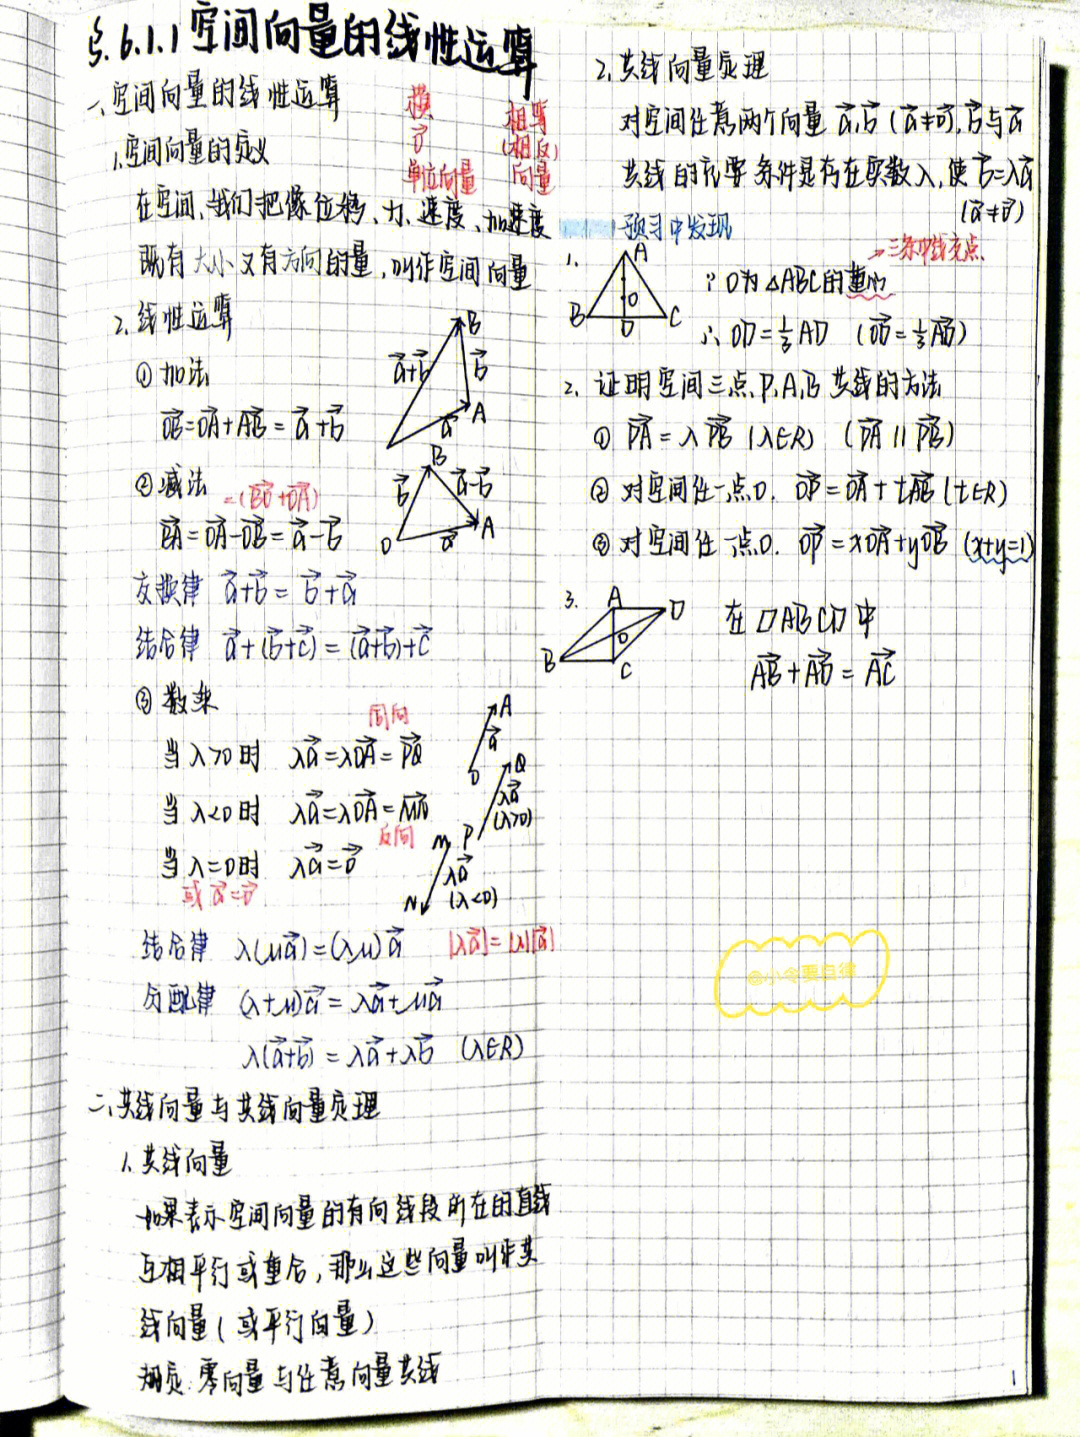 §.6.1.1空间向量的线性运算
一、空间向量的线性运算
模 相等
0⃗ (相反)
单位向量 向量
1.空间向量的定义
在空间,我们把像位移、力、速度、加速度
既有大小又有方向的量,叫作空间向量
2.线性运算
①加法
OB⃗=OA⃗+AB⃗=a⃗+b⃗
a⃗+b⃗ B b⃗ a⃗ A
②减法
=(BO⃗+OA⃗)
BA⃗=OA⃗-OB⃗=a⃗-b⃗
B b⃗ a⃗-b⃗ O a⃗ A
交换律 a⃗+b⃗=b⃗+a⃗
结合律 a⃗+(b⃗+c⃗)=(a⃗+b⃗)+c⃗
③数乘
同向
当λ>0时 λa⃗=λOA⃗=PQ⃗
当λ<0时 λa⃗=λOA⃗=MN⃗
反向
当λ=0时 λa⃗=0⃗
或a⃗=0⃗
A a⃗ O
Q λa⃗ (λ>0) P
M λa⃗ (λ<0) N
结合律 λ(μa⃗)=(λμ)a⃗ |λa⃗|=|λ||a⃗|
分配律 (λ+μ)a⃗=λa⃗+μa⃗
λ(a⃗+b⃗)=λa⃗+λb⃗ (λ∈R)
二、共线向量与共线向量定理
1.共线向量
如果表示空间向量的有向线段所在的直线
互相平行或重合,那么这些向量叫作共
线向量(或平行向量)
规定:零向量与任意向量共线
2.共线向量定理
对空间任意两个向量a⃗,b⃗(a⃗≠0⃗),b⃗与a⃗
共线的充要条件是存在实数λ,使b⃗=λa⃗
(a⃗≠0⃗)
预习中发现
→三条中线交点
1. A B C D O
∵O为△ABC的重心
∴OD=⅓AD (OD⃗=⅓AD⃗)
2.证明空间三点P,A,B共线的方法
①PA⃗=λPB⃗(λ∈R) (PA⃗∥PB⃗)
②对空间任一点O.OP⃗=OA⃗+tAB⃗(t∈R)
③对空间任一点O.OP⃗=xOA⃗+yOB⃗(x+y=1)
3. A D O B C
在▱ABCD中
AB⃗+AD⃗=AC⃗
@小令要自律
1